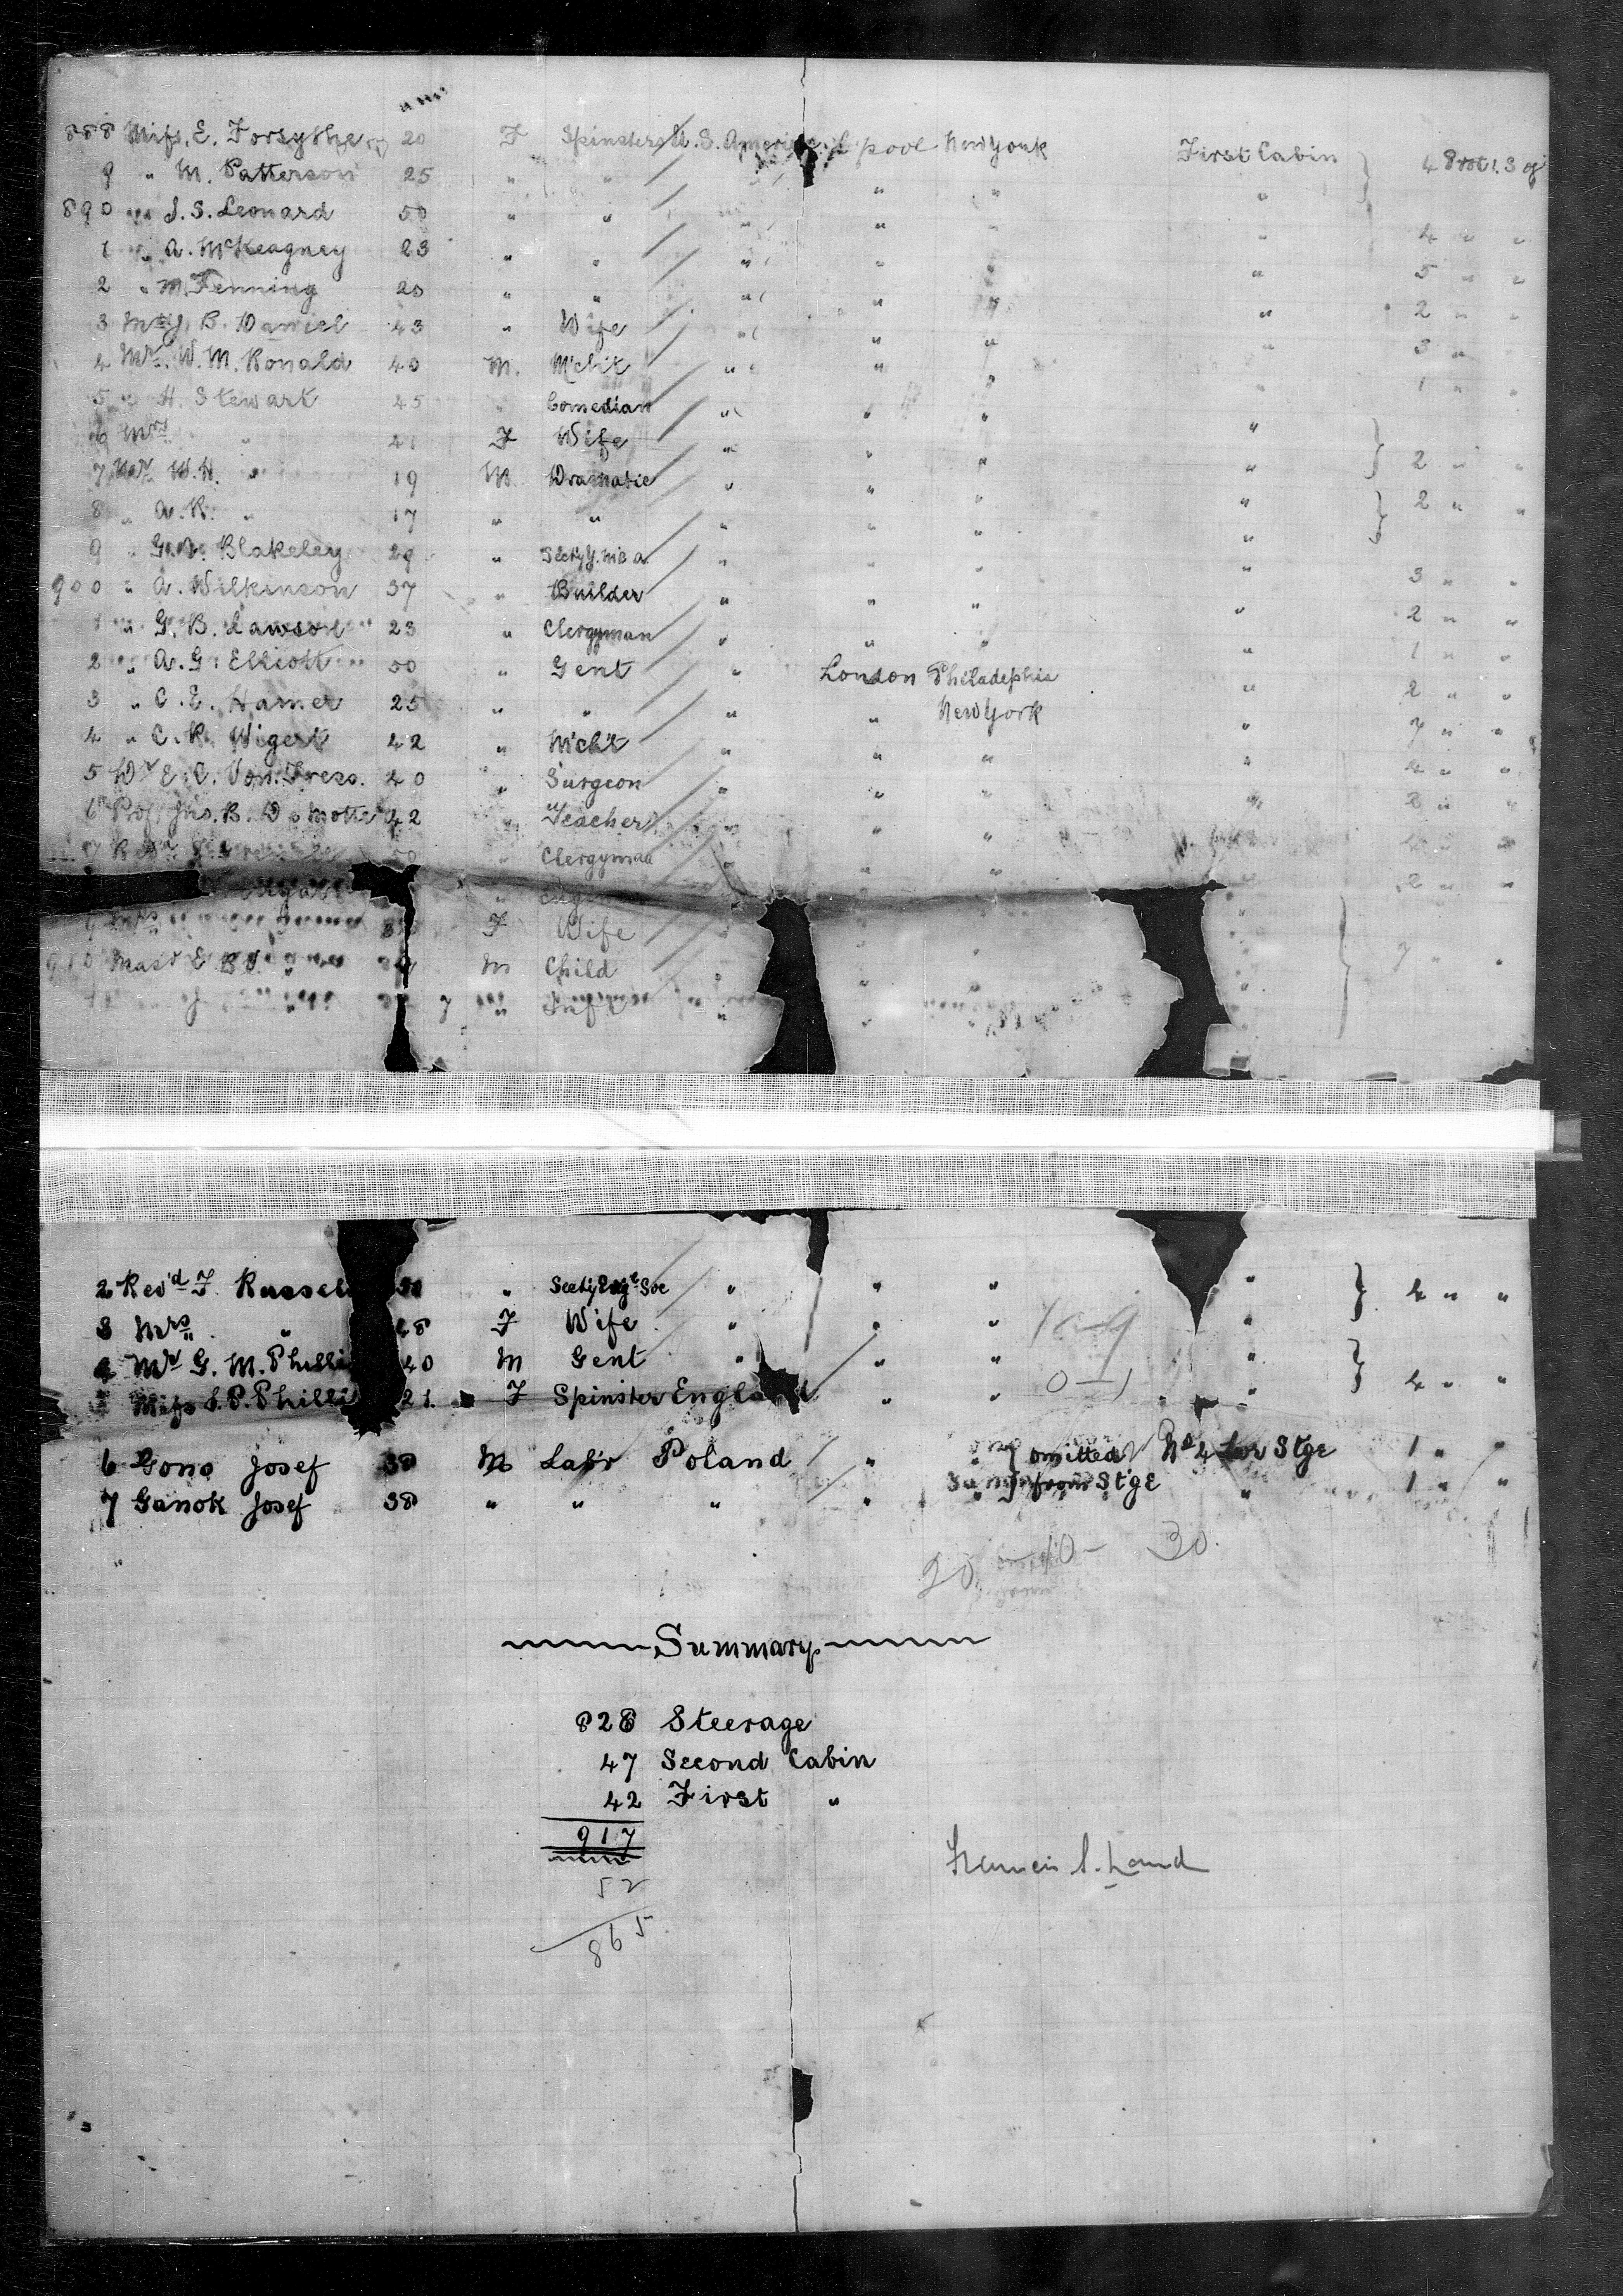 888 Miss. E. Forsythe 20 F Spinster U. S. America L'pool New York First Cabin } 4
9 " M. Patterson 25 " " " " " "
890 " S. Leonard 50 " " " " " " 4 " "
1 " A. McKeagney 23 " " " " " " 5 " "
2 " M Fenning 20 " " " " " " 2 " "
3 Mrs J. B. Daniel 43 " Wife " " " " 3 " "
4 Mr. W. M. Ronald 40 M. Mcht " " " " 1 " "
5 " H. Stewart 45 " Comedian " " " "
6 Mrs " 41 F Wife " " " " } 2 " "
7 Mr W. H. " 19 M Dramatic " " " " } 2 " "
8 " A. R. " 17 " " " " " "
9 " Blakeley 29 " " " " " 3 " "
900 " A. Wilkinson 37 " Builder " " " " 2 " "
1 " G. B. Lawson 23 " Clergyman " " " " 1 " "
2 " A. G. Elliott 50 " Gent " London Philadephia " 2 " "
3 " C. E. Hamer 25 " " " " New York " 7 " "
4 " C. R. Wigert 42 " Mcht " " " " 4 " "
5 Dr E. C. Von. 40 " Surgeon " " " " 2 " "
6 Prof Jno. B. De Motte 42 " Teacher " " " " 4 " "
7 Revd " Clergyman " " " " 2 " "
9 Mrs F Wife " " " " } 7 " "
910 Mast E M Child " " " "
" Inft " " " "
2 Rev'd F Russel 50 " " " " " } 4 " "
3 Mrs " 48 F Wife " " " "
4 Mr G. M. Philli 40 M Gent " " " " } 4 " "
Miss S. P. Philli 21. F Spinster England " " "
6 Gono Josef 38 M Lab'r Poland " omitted No 4 Stge 1 " "
7 Ganok Josef 38 " " " " from St'ge " 1 " "
20 - 10 - 30.
Summary
828 Steerage
47 Second Cabin
42 First "
917
52
865
Francis S. Land